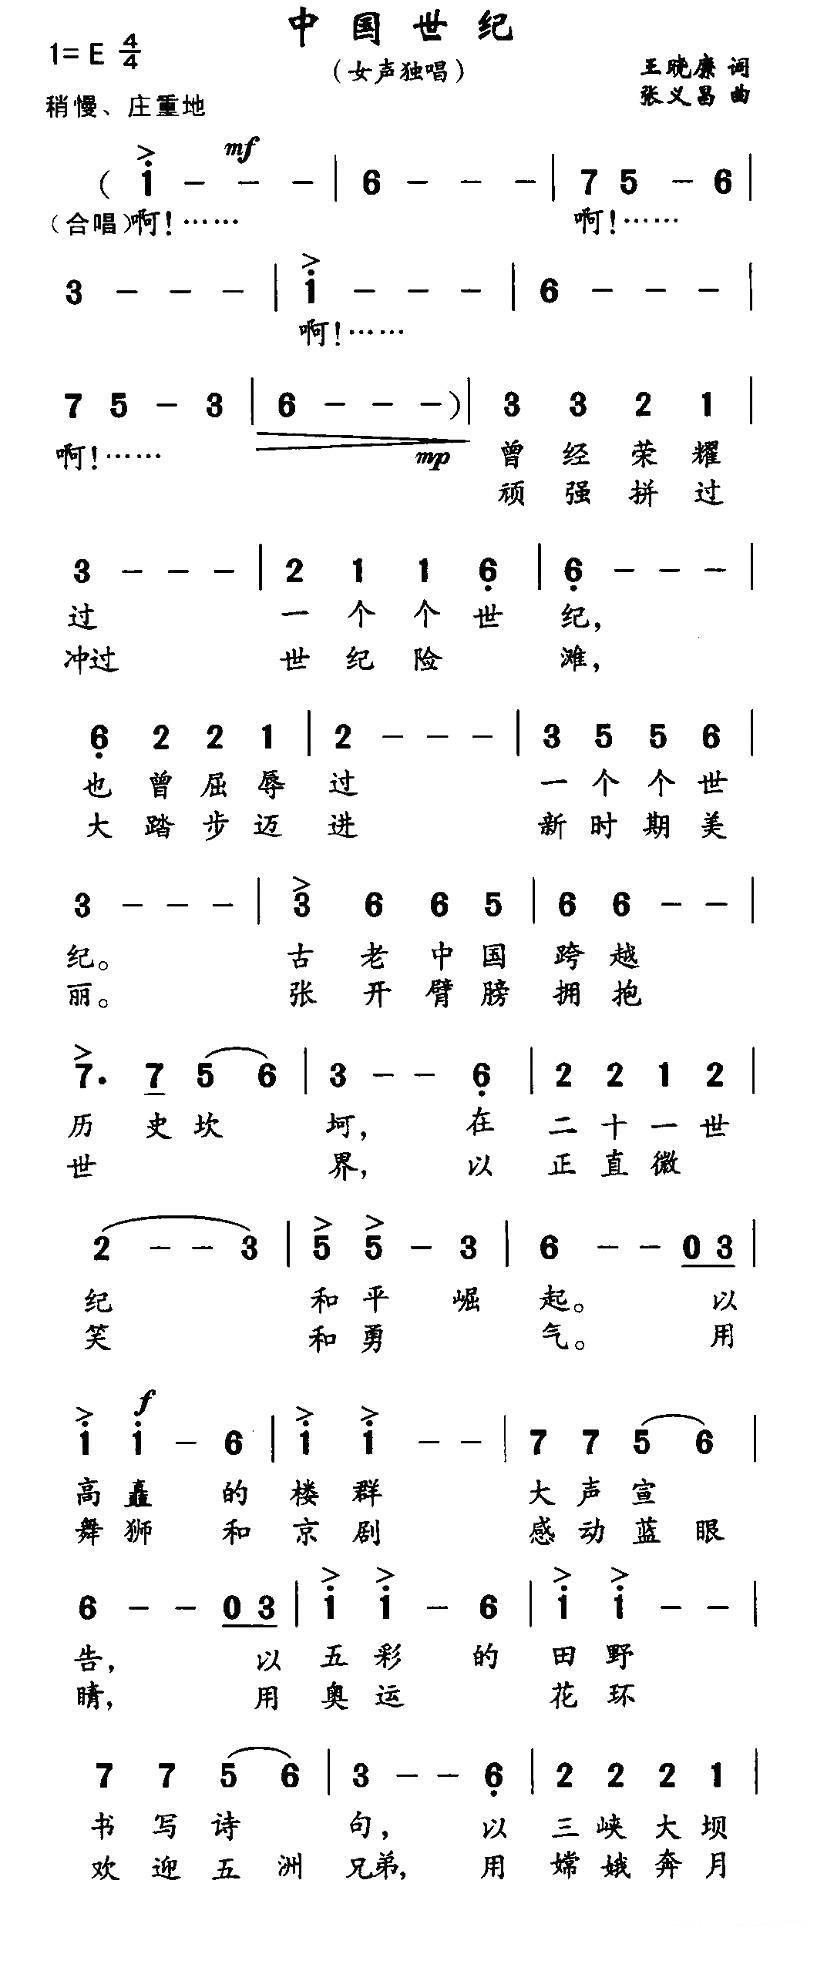 中国世纪
1=E 4/4
（女声独唱）
王晓廉 词
张义昌 曲
稍慢、庄重地
mf
（ 1 - - - | 6 - - - | 7 5 - 6 |
（合唱）啊!…… 啊!……
3 - - - | 1 - - - | 6 - - - |
啊!……
7 5 - 3 | 6 - - - ）| 3 3 2 1 |
啊!…… mp 曾经荣耀
顽强拼过
3 - - - | 2 1 1 6 | 6 - - - |
过 一个个世纪，
冲过 世纪险 滩，
6 2 2 1 | 2 - - - | 3 5 5 6 |
也曾屈辱过 一个个世
大踏步迈进 新时期美
3 - - - | 3 6 6 5 | 6 6 - - |
纪。 古老中国跨越
丽。 张开臂膀拥抱
7. 7 5 6 | 3 - - 6 | 2 2 1 2 |
历史坎 坷，在二十一世
世 界，以正直微
2 - - 3 | 5 5 - 3 | 6 - - 0 3 |
纪 和平崛起。以
笑 和勇 气。用
f
1 1 - 6 | 1 1 - - | 7 7 5 6 |
高矗的楼群 大声宣
舞狮和京剧 感动蓝眼
6 - - 0 3 | 1 1 - 6 | 1 1 - - |
告，以五彩的田野
睛，用奥运 花环
7 7 5 6 | 3 - - 6 | 2 2 2 1 |
书写诗 句，以三峡大坝
欢迎五洲兄弟，用嫦娥奔月